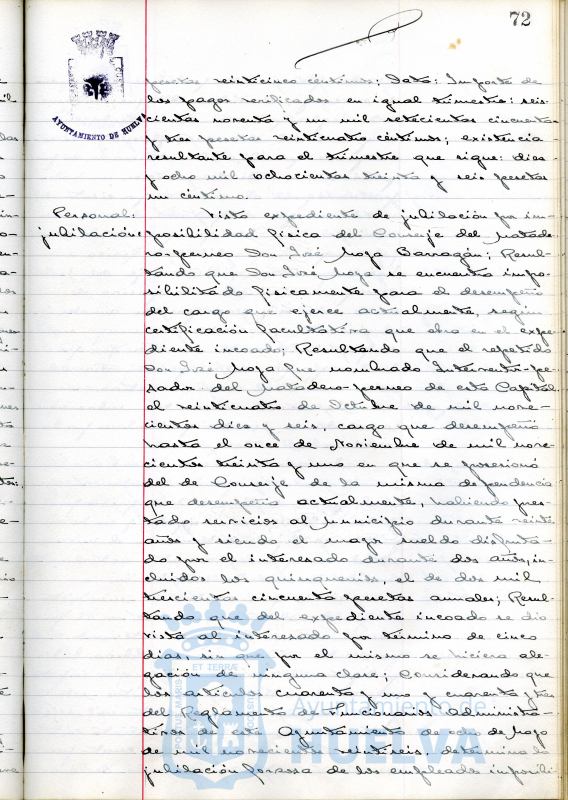 72
AYUNTAMIENTO DE HUELVA
pesetas veinticinco céntimos; Data: Importe de
los pagos verificados en igual trimestre: seis-
cientas noventa y un mil setecientas cincuenta
y tres pesetas veinticuatro céntimos; existencia
resultante para el trimestre que sigue: diez
y ocho mil ochocientas treinta y seis pesetas
un céntimo.
Personal:
jubilación
Visto expediente de jubilación por im-
posibilidad física del Conserje del Matade-
ro-perneo Don José Moya Barragán; Resul-
tando que Don José Moya se encuentra impo-
sibilitado físicamente para el desempeño
del cargo que ejerce actualmente, según
certificación facultativa que obra en el expe-
diente incoado; Resultando que el repetido
Don José Moya fue nombrado Interventor-pe-
sador del Matadero-perneo de esta Capital
el veinticuatro de Octubre de mil nove-
cientos diez y seis, cargo que desempeñó
hasta el once de Noviembre de mil nove-
cientos treinta y uno en que se posesionó
del de Conserje de la misma dependencia
que desempeña actualmente, habiendo pres-
tado servicios al Municipio durante veinte
años y siendo el mayor sueldo disfruta-
do por el interesado durante dos años, in-
cluidos los quinquenios, el de dos mil
trescientas cincuenta pesetas anuales; Resul-
tando que del expediente incoado se dio
vista al interesado por término de cinco
días sin que por el mismo se hiciera ale-
gación de ninguna clase; Considerando que
los artículos cuarenta y uno y cuarenta y tres
del Reglamento de funcionarios administra-
tivos de este Ayuntamiento de ocho de Mayo
de mil novecientos veintiseis, determina la
jubilación forzosa de los empleados imposibi-
Ayuntamiento de
HUELVA